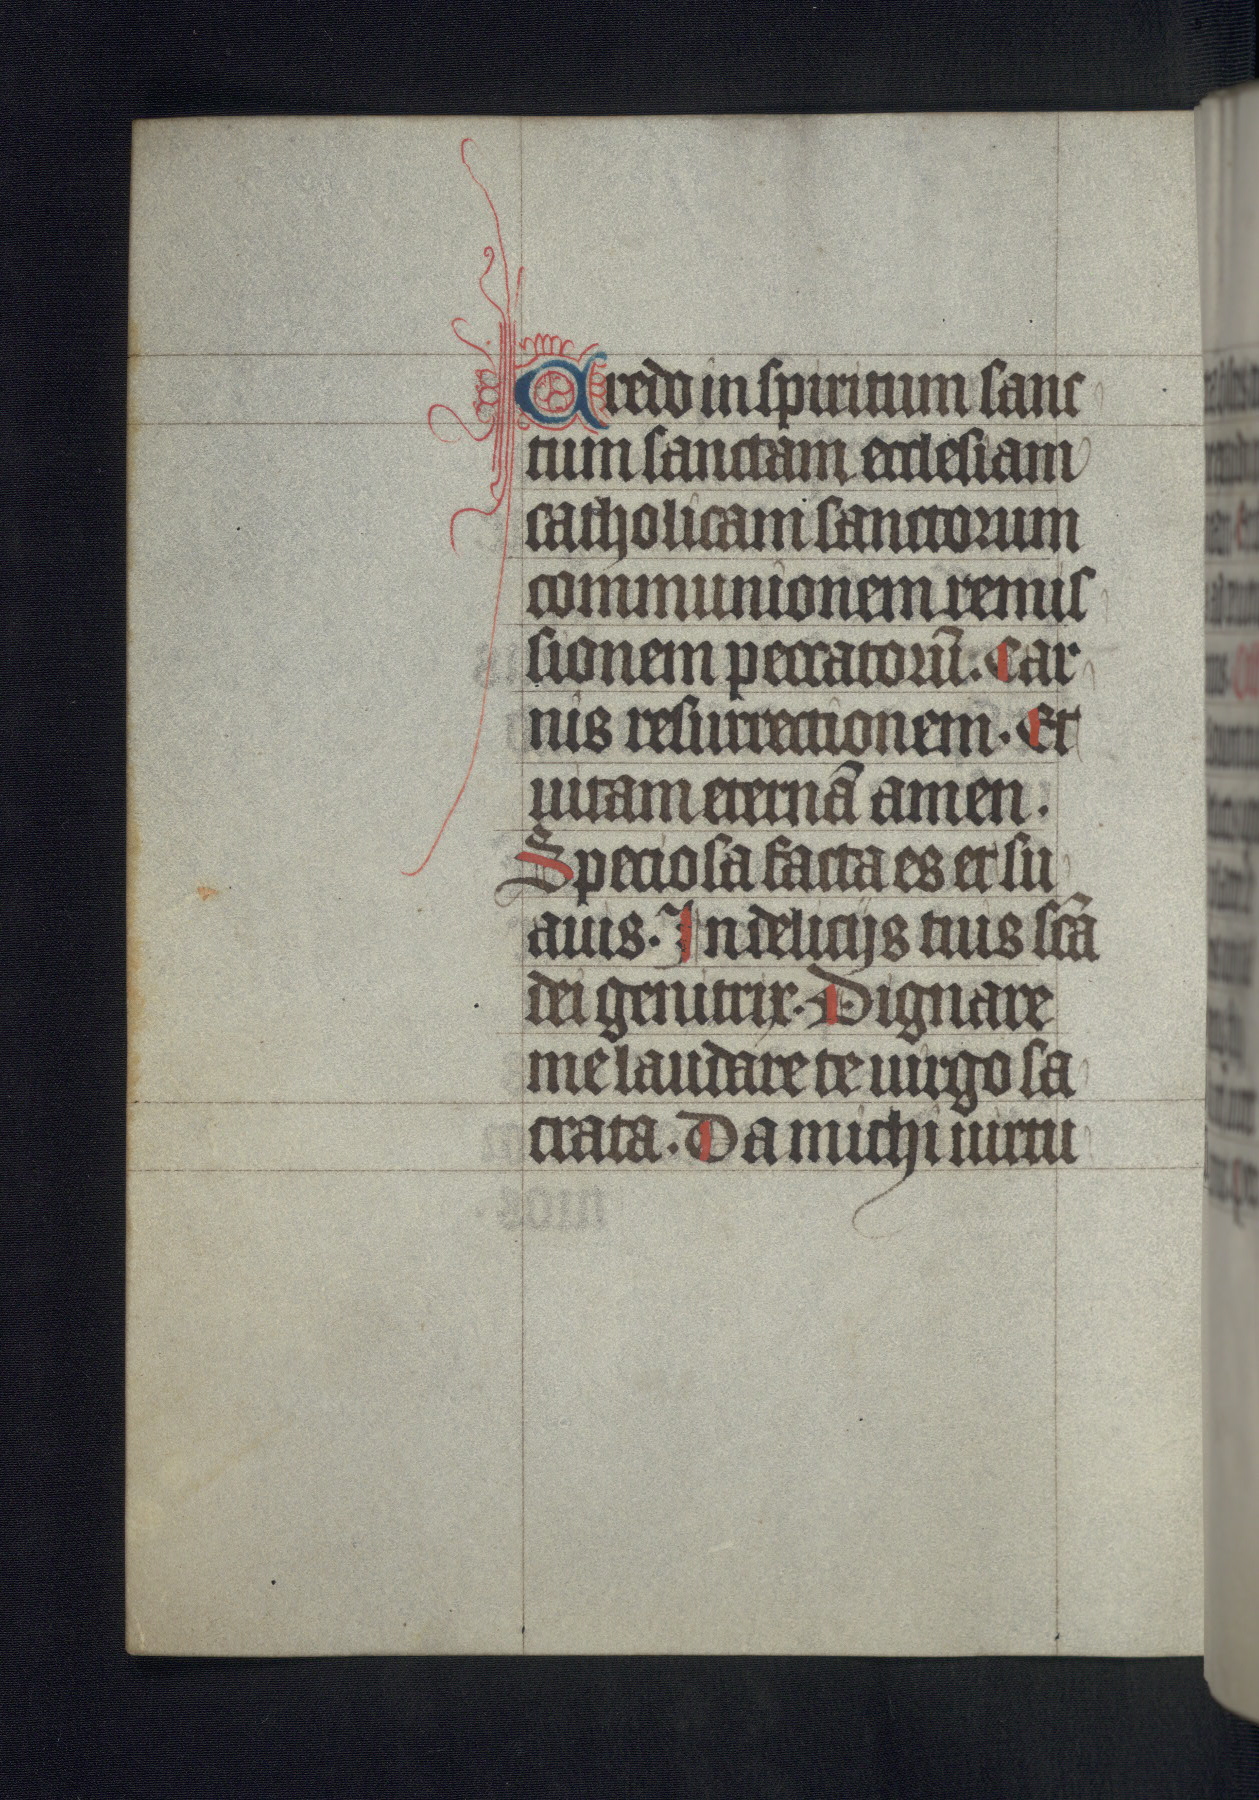 Credo in spiritum sanc
tum sanctam ecclesiam
catholicam sanctorum
communionem remis
sionem peccatorū. Car
nis resurrectionem. Et
uitam eternā amen.
Speciosa facta es et su
auis. In delicijs tuis sc̄a
dei genitrix. Dignare
me laudare te uirgo sa
crata. Da michi uirtu